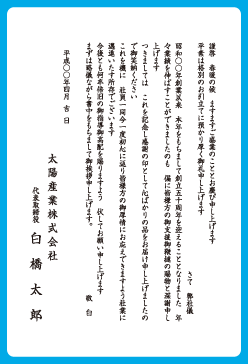 謹啓 春暖の候 ますますご盛業のこととお慶び申し上げます
平素は格別のお引立てに預かり厚く御礼申し上げます
さて 弊社儀
昭和〇〇年創業以来 本年をもちまして創立五十周年を迎えることとなりました 年々業績を伸ばすことができましたのも 偏に皆様方の御支援御鞭撻の賜物と深謝申し上げます
つきましては これを記念し感謝の印として心ばかりの品をお届け申し上げましたので御笑納ください
これを機に 社員一同今一度初心に返り皆様方の御厚情にお応えできますよう社業に邁進いたす所存でございます
今後とも何卒倍旧の御指導御高配を賜りますよう 伏してお願い申し上げます
まずは略儀ながら書中をもちまして御挨拶申し上げます。
敬白
平成〇〇年四月吉日
太陽産業株式会社
代表取締役 白橋太郎